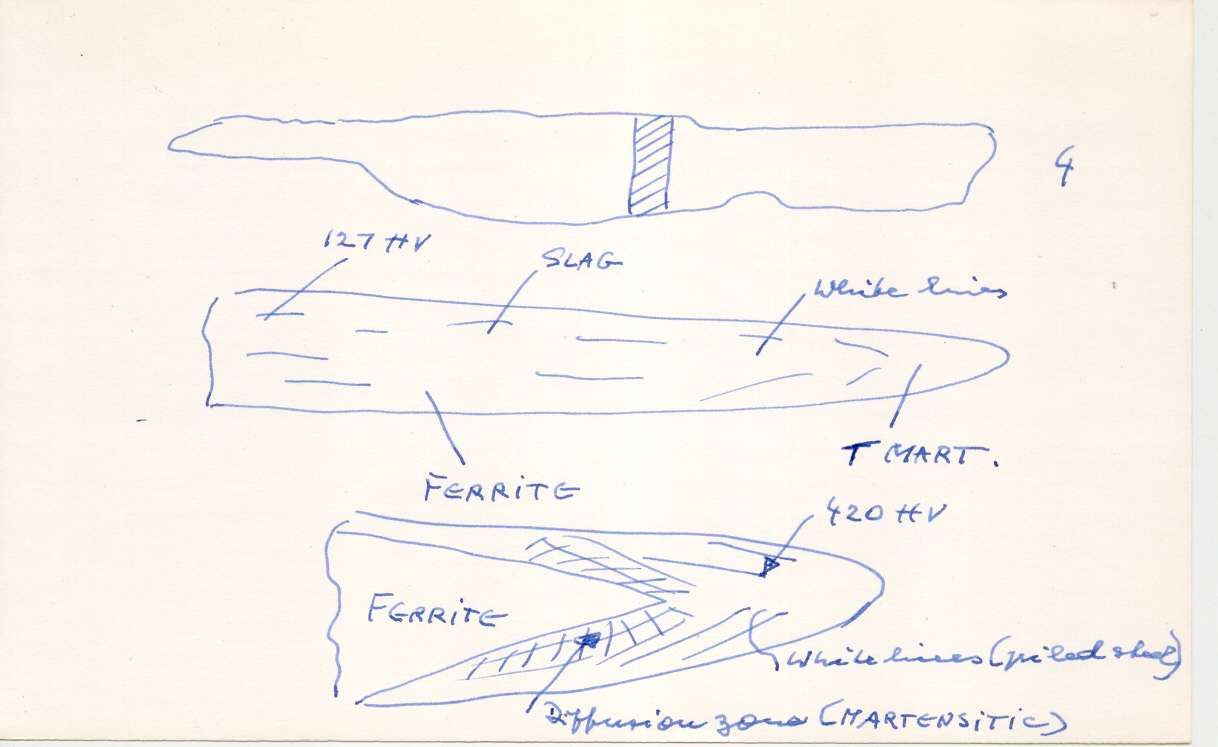 4
127 HV
SLAG
White lines
T MART.
FERRITE
420 HV
FERRITE
White lines (piled steel)
Diffusion zone (MARTENSITIC)